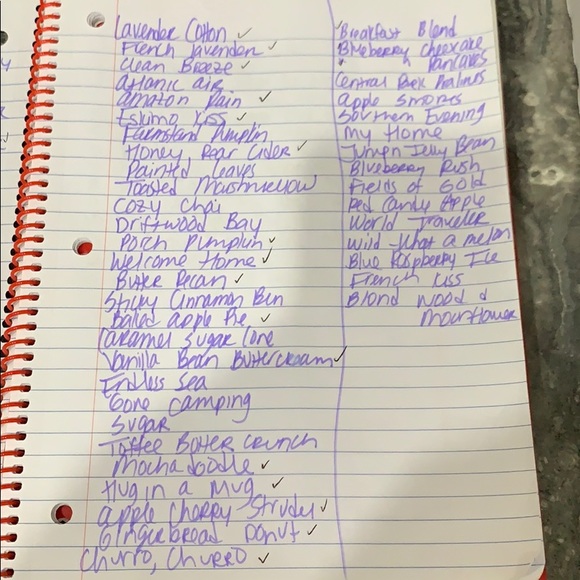 Lavender Cotton ✓
French lavender ✓
Clean Breeze ✓
Atlanic air
Amazon Rain ✓
Eskimo Kiss ✓
Farmstand Pumpkin
Honey Pear Cider ✓
Painted leaves
Toasted Marshmellow
Cozy Chai
Driftwood Bay
Porch Pumpkin ✓
Welcome Home ✓
Butter Pecan ✓
Sticky Cinnamon Bun
Baked apple Pie ✓
Caramel Sugar Cone
Vanilla Bean Buttercream ✓
Endless Sea
Gone Camping
Sugar
Toffee Butter Crunch
Mocha doodle ✓
Hug in a Mug ✓
apple Cherry Strudel ✓
Gingerbread Donut ✓
Churro, Churro ✓
Breakfast Blend
Blueberry Cheexake
" Pancakes
Central Park Pralines
apple Smores
Southern Evening
My Home
Jumpn Jelly Bean
Blueberry Rush
Fields of Gold
Red Candy Apple
World Traveler
Wild What a melon
Blue Raspberry Ice
French Kiss
Blond Wood &
Moonflower